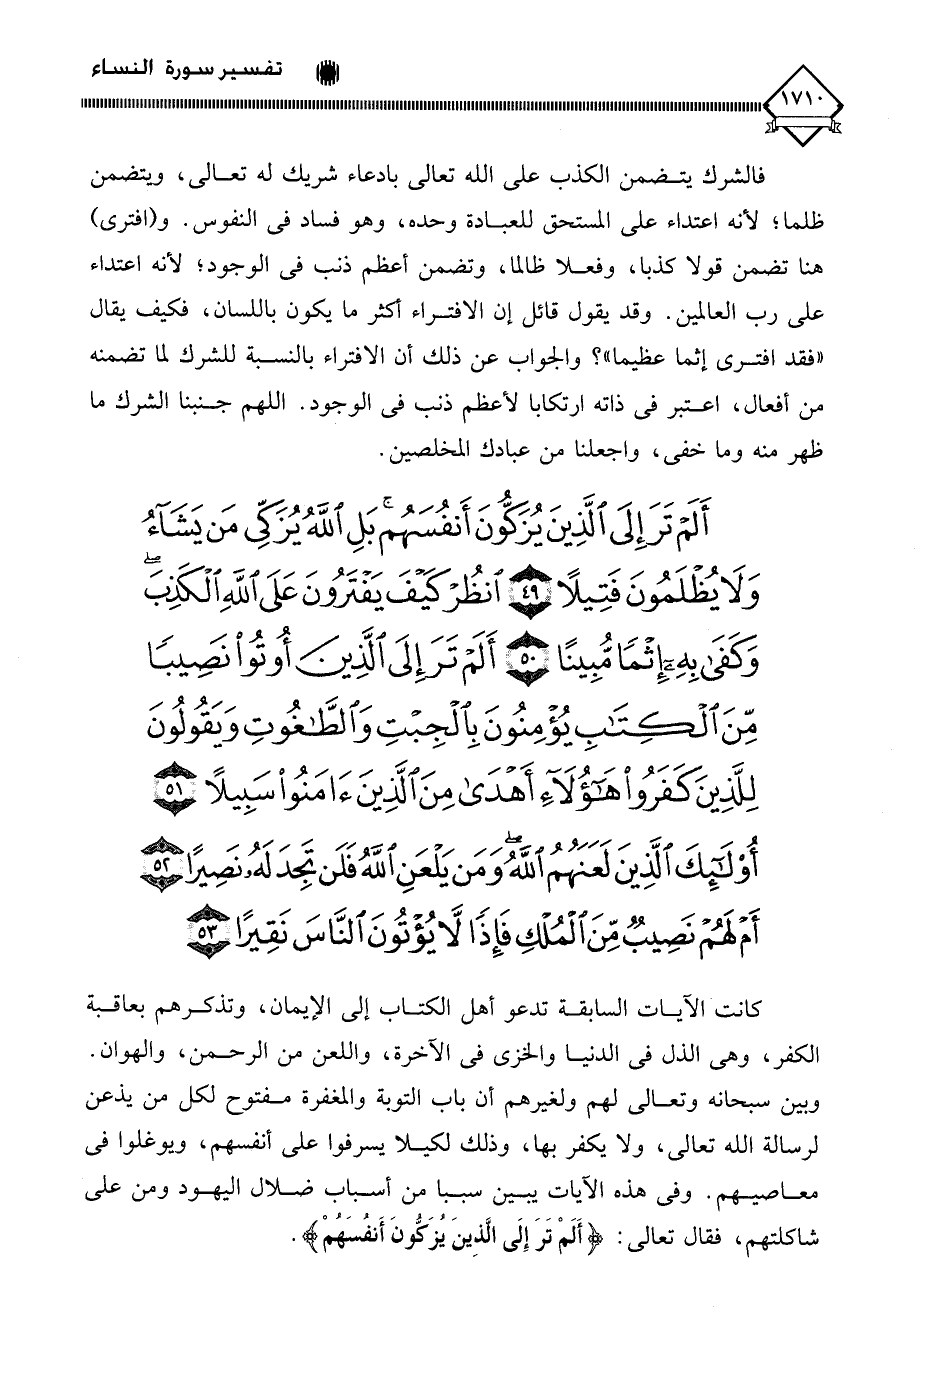 ١٧١٠
تفسير سورة النساء
فالشرك يتضمن الكذب على الله تعالى بادعاء شريك له تعالى، ويتضمن
ظلما؛ لأنه اعتداء على المستحق للعبادة وحده، وهو فساد فى النفوس. و(افترى)
هنا تضمن قولا كذبا، وفعلا ظالما، وتضمن أعظم ذنب فى الوجود؛ لأنه اعتداء
على رب العالمين. وقد يقول قائل إن الافتراء أكثر ما يكون باللسان، فكيف يقال
«فقد افترى إثما عظيما»؟ والجواب عن ذلك أن الافتراء بالنسبة للشرك لما تضمنه
من أفعال، اعتبر فى ذاته ارتكابا لأعظم ذنب فى الوجود. اللهم جنبنا الشرك ما
ظهر منه وما خفى، واجعلنا من عبادك المخلصين.
أَلَمْ تَرَ إِلَى ٱلَّذِينَ يُزَكُّونَ أَنفُسَهُم ۚ بَلِ ٱللَّهُ يُزَكِّى مَن يَشَآءُ
وَلَا يُظْلَمُونَ فَتِيلًا ٤٩ ٱنظُرْ كَيْفَ يَفْتَرُونَ عَلَى ٱللَّهِ ٱلْكَذِبَ ۖ
وَكَفَىٰ بِهِۦٓ إِثْمًا مُّبِينًا ٥٠ أَلَمْ تَرَ إِلَى ٱلَّذِينَ أُوتُوا۟ نَصِيبًا
مِّنَ ٱلْكِتَـٰبِ يُؤْمِنُونَ بِٱلْجِبْتِ وَٱلطَّـٰغُوتِ وَيَقُولُونَ
لِلَّذِينَ كَفَرُوا۟ هَـٰٓؤُلَآءِ أَهْدَىٰ مِنَ ٱلَّذِينَ ءَامَنُوا۟ سَبِيلًا ٥١
أُو۟لَـٰٓئِكَ ٱلَّذِينَ لَعَنَهُمُ ٱللَّهُ ۖ وَمَن يَلْعَنِ ٱللَّهُ فَلَن تَجِدَ لَهُۥ نَصِيرًا ٥٢
أَمْ لَهُمْ نَصِيبٌ مِّنَ ٱلْمُلْكِ فَإِذًا لَّا يُؤْتُونَ ٱلنَّاسَ نَقِيرًا ٥٣
كانت الآيات السابقة تدعو أهل الكتاب إلى الإيمان، وتذكرهم بعاقبة
الكفر، وهى الذل فى الدنيا والخزى فى الآخرة، واللعن من الرحمن، والهوان.
وبين سبحانه وتعالى لهم ولغيرهم أن باب التوبة والمغفرة مفتوح لكل من يذعن
لرسالة الله تعالى، ولا يكفر بها، وذلك لكيلا يسرفوا على أنفسهم، ويوغلوا فى
معاصيهم. وفى هذه الآيات يبين سببا من أسباب ضلال اليهود ومن على
شاكلتهم، فقال تعالى: ﴿أَلَمْ تَرَ إِلَى الَّذِينَ يُزَكُّونَ أَنفُسَهُمْ﴾.